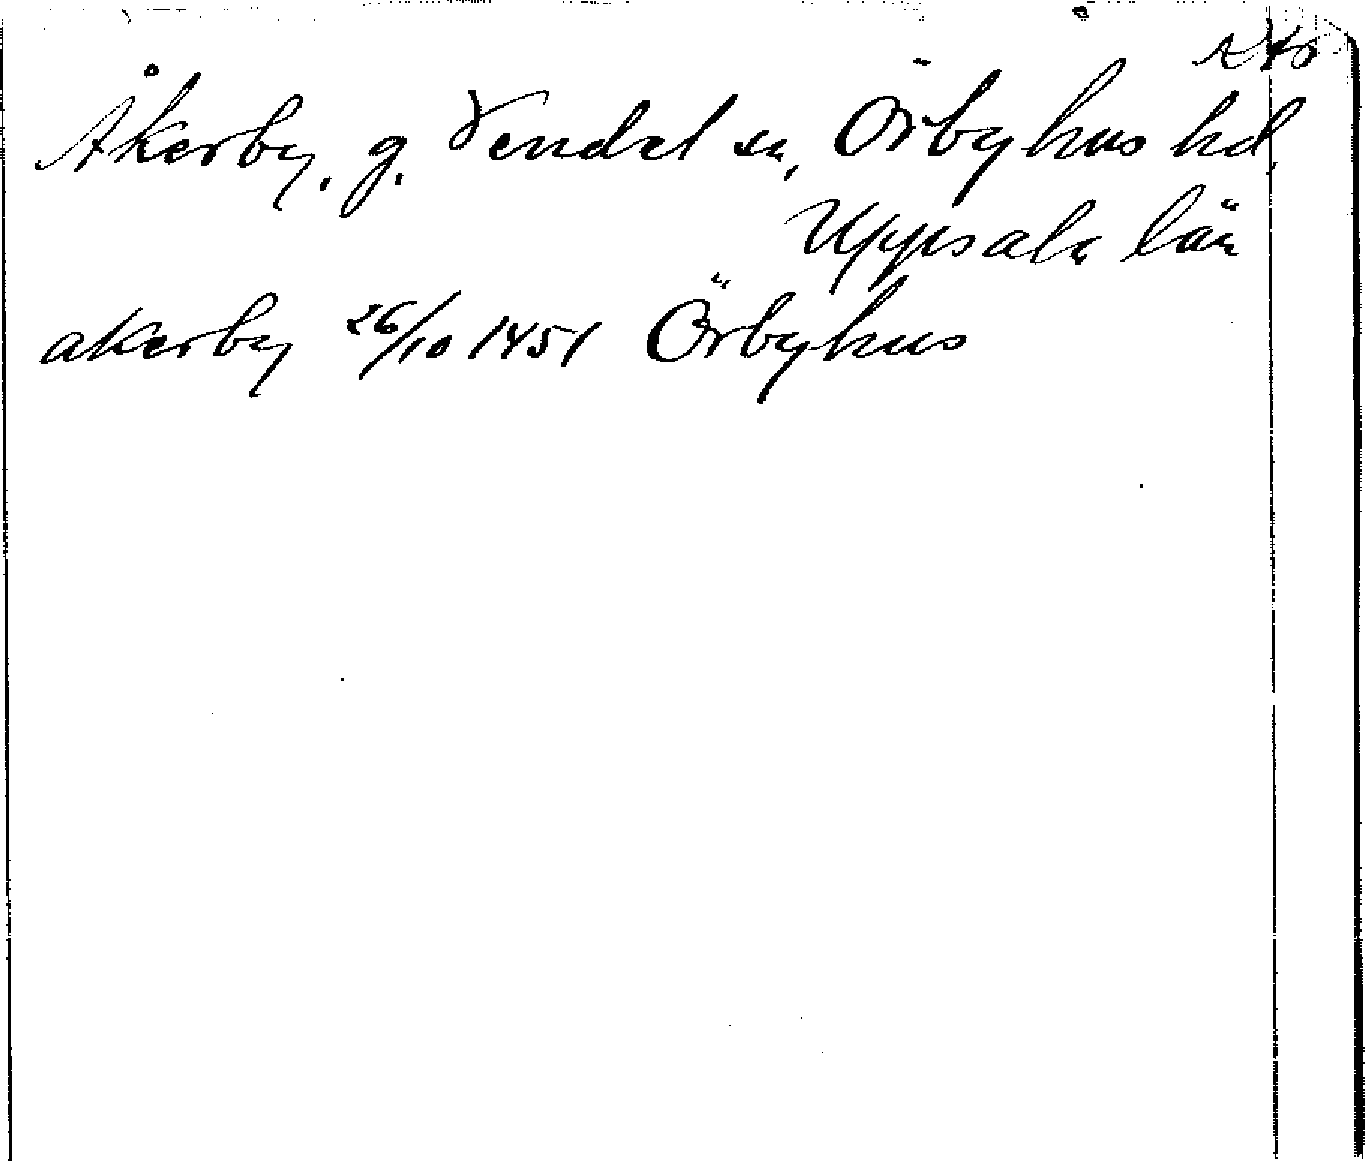 Åkerby, g. Vendel sn, Örbyhus hd.
Uppsala län
akerby 26/10 1451 Örbyhus